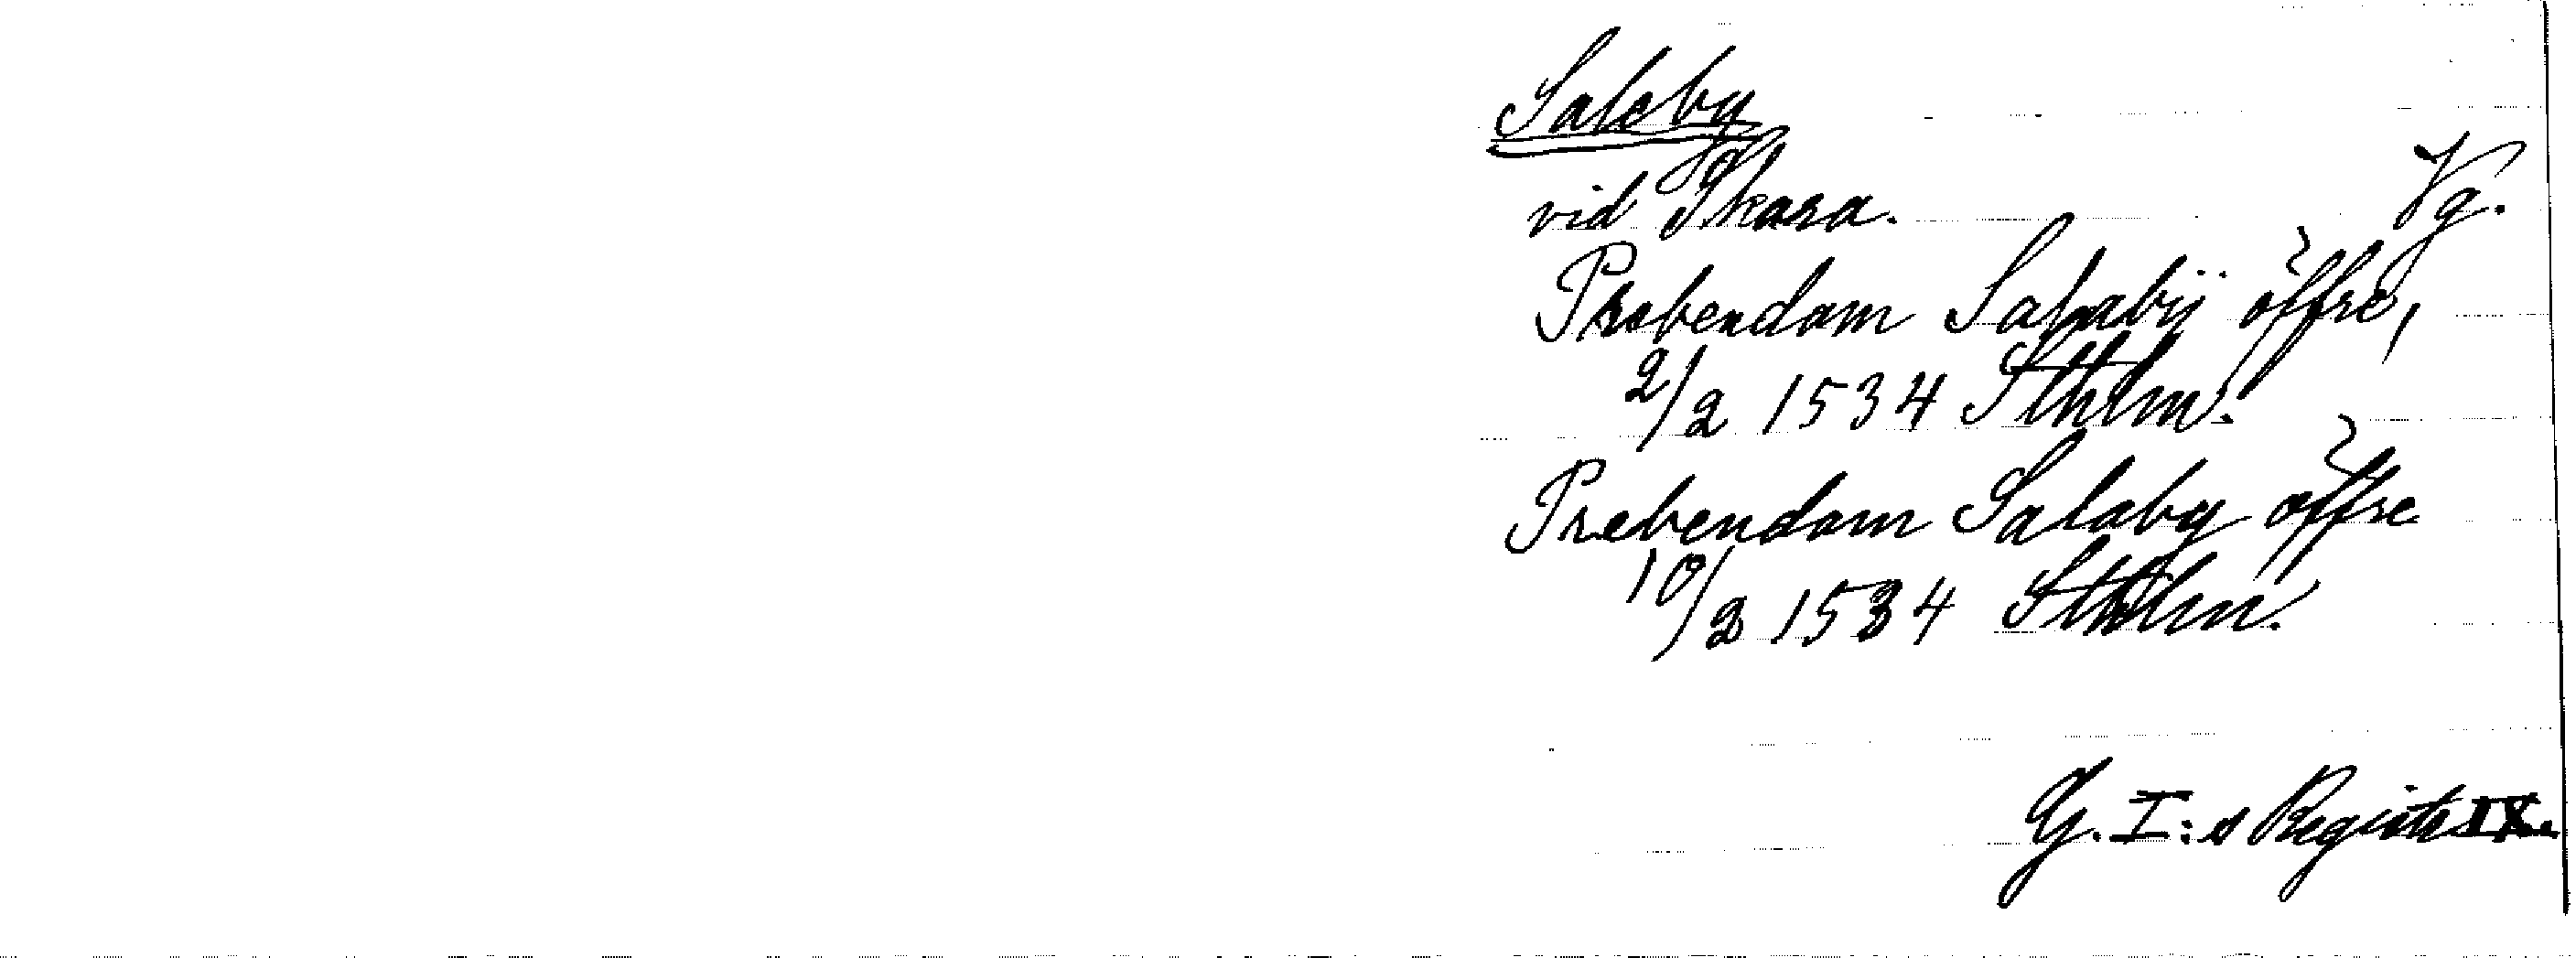 Saleby
vid Skara. Vg.
Prebendam Salabij öffre,
2/2 1534 Sthlm.
Prebendam Salaby öffre
10/2 1534 Sthlm.
G. I:s Registr IX.